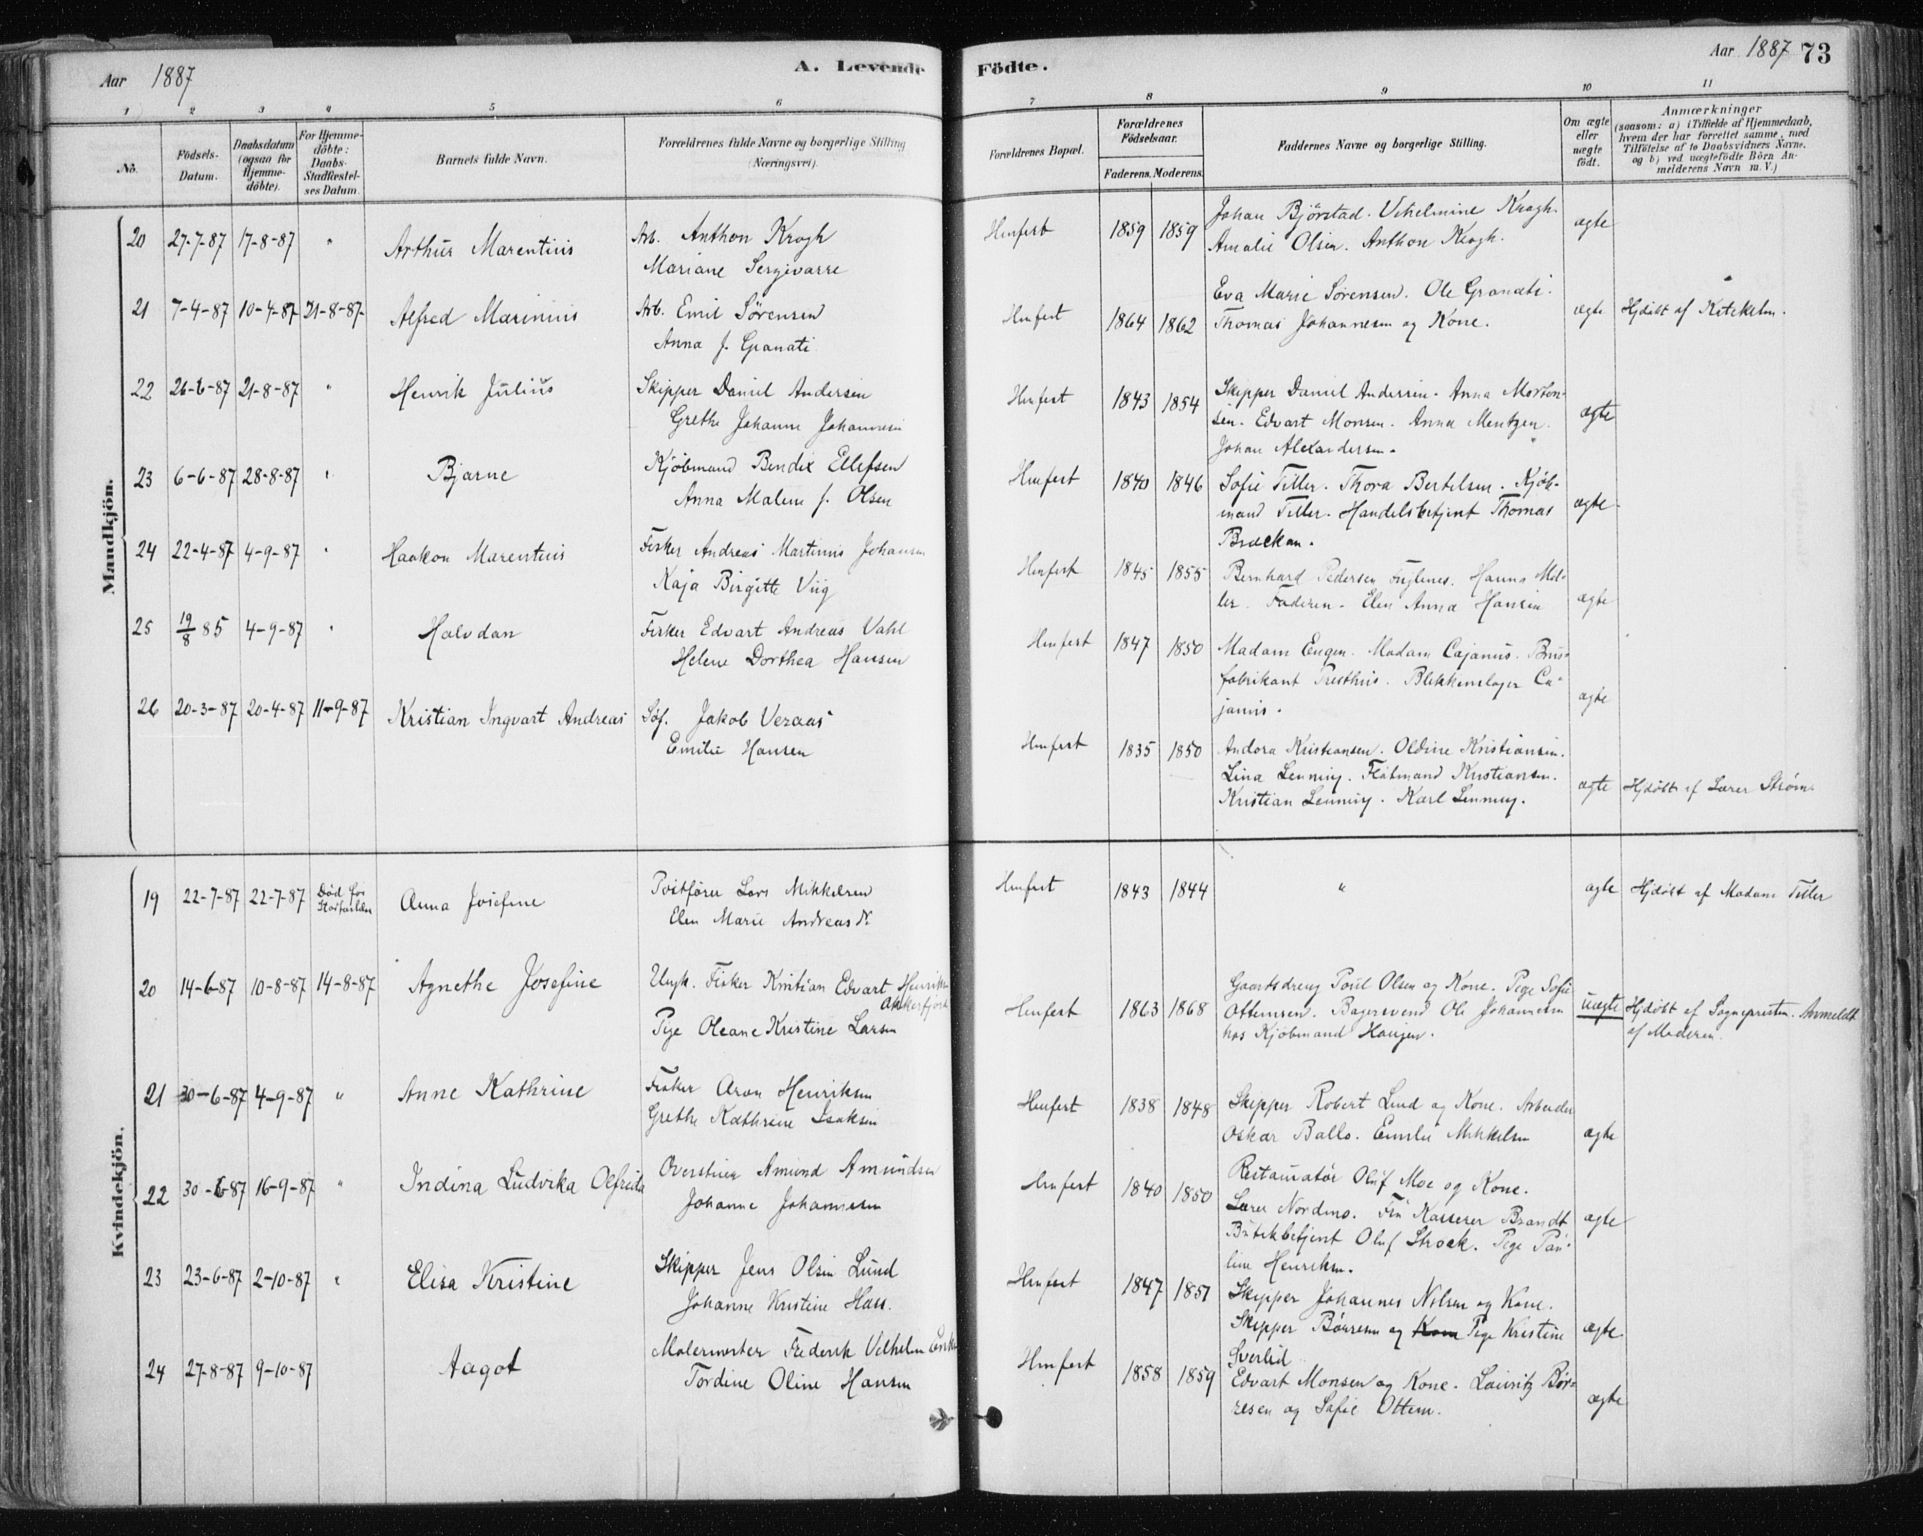 Aar 1887
A. Levende Födte.
Aar 1887 73
1 2 3 4 5 6 7 8 9 10 11
No.
Födsels-Datum.
Daabsdatum (ogsaa for Hjemme-döbte).
For Hjemme-döbte: Daabs-Stadfæstel-ses Datum.
Barnets fulde Navn.
Forældrenes fulde Navne og borgerlige Stilling (Næringsvei).
Forældrenes Bopæl.
Forældrenes Födselsaar.
Faderens. Moderens.
Faddernes Navne og borgerlige Stilling.
Om ægte eller uægte födt.
Anmærkninger
(saasom: a) i Tilfælde af Hjemmedaab,
hvem der har forrettet samme, med
Tilföielse af to Daabsvidners Navne,
og b) ved uægtefödte Börn An-
melderens Navn m. V.)
Mandkjön.
20 27-7-87 17-8-87 " Arthur Marentius Arb. Anthon Krogh
Mariane Sergivarre
Hmfest 1859 1859 Johan Bjørstad. Vilhelmine Krogh.
Amalie Olsen. Anthon Krogh. ægte
21 7-4-87 10-4-87 21-8-87 Alfred Marinius Arb. Emil Sörensen
Anna J. Granati
Hmfest 1864 1862 Eva Marie Sørensen. Ole Granati.
Thomas Johannesen og Kone. ægte Hjdöbt af
22 26-6-87 21-8-87 " Henrik Julius Skipper Daniel Andersen
Grethe Johanne Johannesen
Hmfest 1843 1854 Skipper Daniel Andersen. Anna Morton-
sen. Edvart Monsen. Anna Mentzen.
Johan Alexandersen. ægte
23 6-6-87 28-8-87 " Bjarne Kjøbmand Bendix Ellefsen
Anna Malene J. Olsen
Hmfest 1840 1846 Sofie Teller. Thora Bertelsen. Kjøb-
mand Teller. Handelsbetjent Thomas
Brackan. ægte
24 22-4-87 4-9-87 " Haakon Marentius Fisker Andreas Martinus Johansen
Kaja Birgitte Viig
Hmfest 1845 1855 Bernhard Pedersen Fuglenes. Hanna Mel-
ler. Faderen. Elen Anna Hansen ægte
25 19/8 85 4-9-87 " Halvdan Fisker Edvart Andreas Vahl
Helene Dorthea Hansen
Hmfest 1847 1850 Madam Eugen. Madam Cajanus. Brus-
fabrikant Presthus. Blikkenslager Ca-
janus. ægte
26 20-3-87 20-4-87 11-9-87 Kristian Ingvart Andreas Søf. Jakob Veraas
Emilie Hansen
Hmfest 1835 1850 Andora Kristiansen. Oldine Kristiansen.
Lina Lenning. Flötmand Kristiansen.
Kristian Lenning. Karl Lenning. ægte Hjdöbt af Lærer Strøm
Kvindekjön.
19 22-7-87 22-7-87 Död for Stadfæstelsen Anna Josefine Postfører Lars Mikkelsen
Elen Marie Andreasdr.
Hmfest 1843 1844 " ægte Hjdöbt af Madam Teller
20 14-6-87 10-8-87 14-8-87 Agnethe Josefine Ungk. Fisker Kristian Edvart Henriksen
Akkerfjord
Pige Oleane Kristine Larsen
Hmfest 1863 1868 Gaardsdreng Poul Olsen og Kone. Pige Sofie
Ottemsen. Bagersvend Ole Johannesen
hos Kjøbmand Haugen. uægte Hjdöbt af Sognepresten. Anmeldt
af Moderen.
21 30-6-87 4-9-87 " Anne Kathrine Fisker Aron Henriksen
Grethe Kathrine Isaksen
Hmfest 1838 1848 Skipper Robert Lund og Kone. Arbeider
Oskar Ballo. Emilie Mikkelsen ægte
22 30-6-87 16-9-87 " Indina Ludvika Olfrida Amund Amundsen
Johanne Johannesen
Hmfest 1840 1850 Restauratør Oluf Moe og Kone.
Lærer Nordmo. Frk Kasserer Brandt
Butikbetjent Oluf Strock. Pige Pau-
line Henriksen. ægte
23 23-6-87 2-10-87 " Elisa Kristine Skipper Jens Olsen Lund
Johanne Kristine Hass.
Hmfest 1847 1851 Skipper Johannes Nilsen og Kone.
Skipper Børresen og Kone Pige Kristine
Sverlid ægte
24 27-8-87 9-10-87 Aagot Malermester Frederik Velhelm
Tordine Oline Hansen
Hmfest 1858 1859 Edvart Monsen og Kone. Lauritz Bør-
resen og Sofie Ottem. ægte